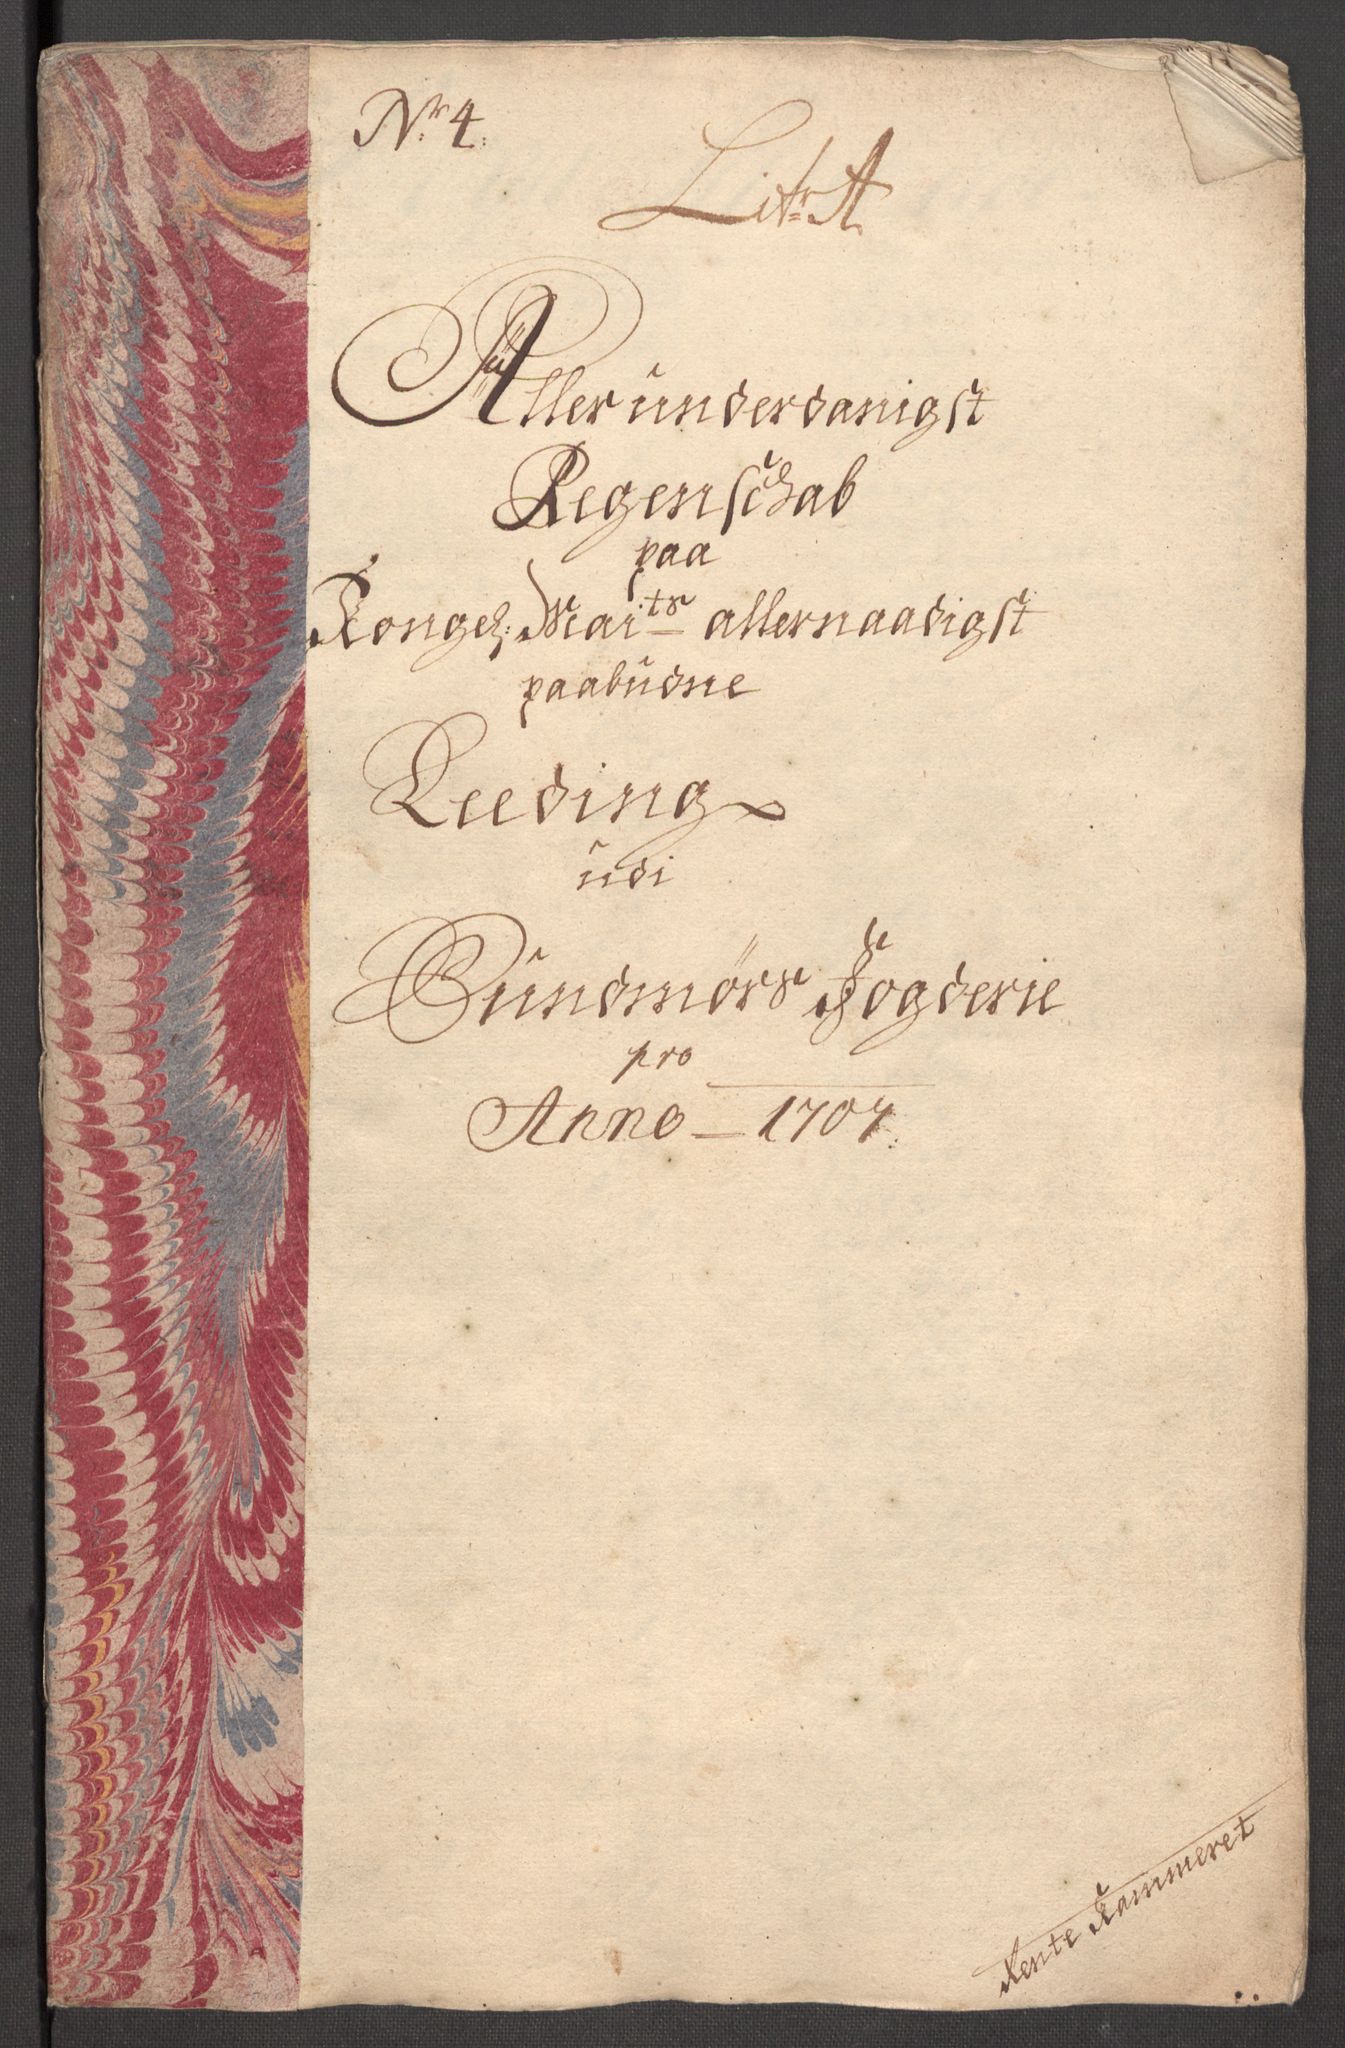 Nr. 4.
Litr A
Alleründerdanigst
Regenschab
paa
Kongel: Maits allernaadigst
paabüdne
Leeding
üdi
Sündmørs Fogderie
pro
Anno 1707.
Rente Kammeret